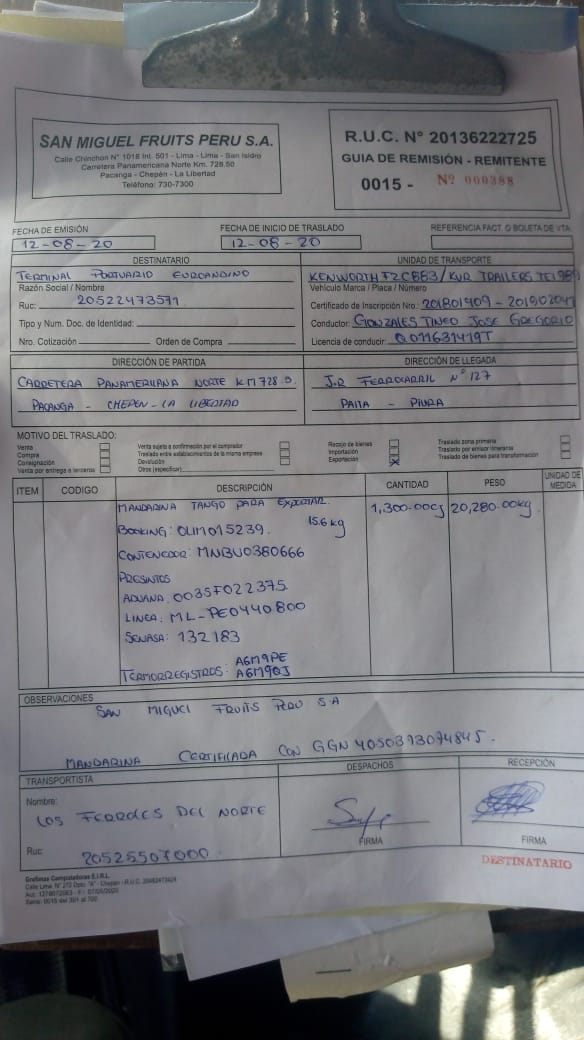 SAN MIGUEL FRUITS PERU S.A.
Calle Chinchon N° 1018 Int. 501 - Lima - Lima - San Isidro
Carretera Panamericana Norte Km. 728.50
Pacanga - Chepén - La Libertad
Teléfono: 730-7300
R.U.C. N° 20136222725
GUIA DE REMISIÓN - REMITENTE
0015 - Nº 000388
FECHA DE EMISIÓN
12-08-20
FECHA DE INICIO DE TRASLADO
12-08-20
REFERENCIA FACT. O BOLETA DE VTA.
DESTINATARIO
TERMINAL PORTUARIO EUROANDINO
Razón Social / Nombre
Ruc: 20522473571
Tipo y Num. Doc. de Identidad:
Nro. Cotización Orden de Compra
UNIDAD DE TRANSPORTE
KENWORTH F2C883/KUR TRAILERS
Vehículo Marca / Placa / Número
Certificado de Inscripción Nro:
Conductor: GONZALES TINEO JOSE GREGORIO
Licencia de conducir:
DIRECCIÓN DE PARTIDA
CARRETERA PANAMERICANA NORTE KM 728.5
PACANGA - CHEPEN - LA LIBERTAD
DIRECCIÓN DE LLEGADA
J.R FERROCARRIL N° 127
PAITA - PIURA
MOTIVO DEL TRASLADO:
Venta
Compra
Consignación
Venta por entrega a terceros
Venta sujeta a confirmación por el comprador
Traslado entre establecimientos de la misma empresa
Devolución
Otros (especificar)
Recojo de bienes
Importación
Exportación X
Traslado zona primaria
Traslado por emisor itinerante
Traslado de bienes para transformación
ITEM CODIGO DESCRIPCIÓN CANTIDAD PESO UNIDAD DE MEDIDA
MANDARINA TANGO PARA EXPORTAR 1,300.00CJ 20,280.00kg
15.6 kg
BOOKING: OLIM015239.
CONTENEDOR: MNBU0380666
PRESINTOS
ADUANA: 0035F022375
LINEA: ML-PE0440800
SENASA: 132183
TERMORREGISTROS: A6M9PE
A6M9QJ
OBSERVACIONES
SAN MIGUEL FRUITS PERU S.A
MANDARINA CERTIFICADA CON GGN 4050373074845.
TRANSPORTISTA
Nombre:
LOS FERROLES DEL NORTE
Ruc: 20525507000
DESPACHOS
FIRMA
RECEPCIÓN
FIRMA
DESTINATARIO
Grafinas Computadoras E.I.R.L.
Serie: 0015 del 351 al 700